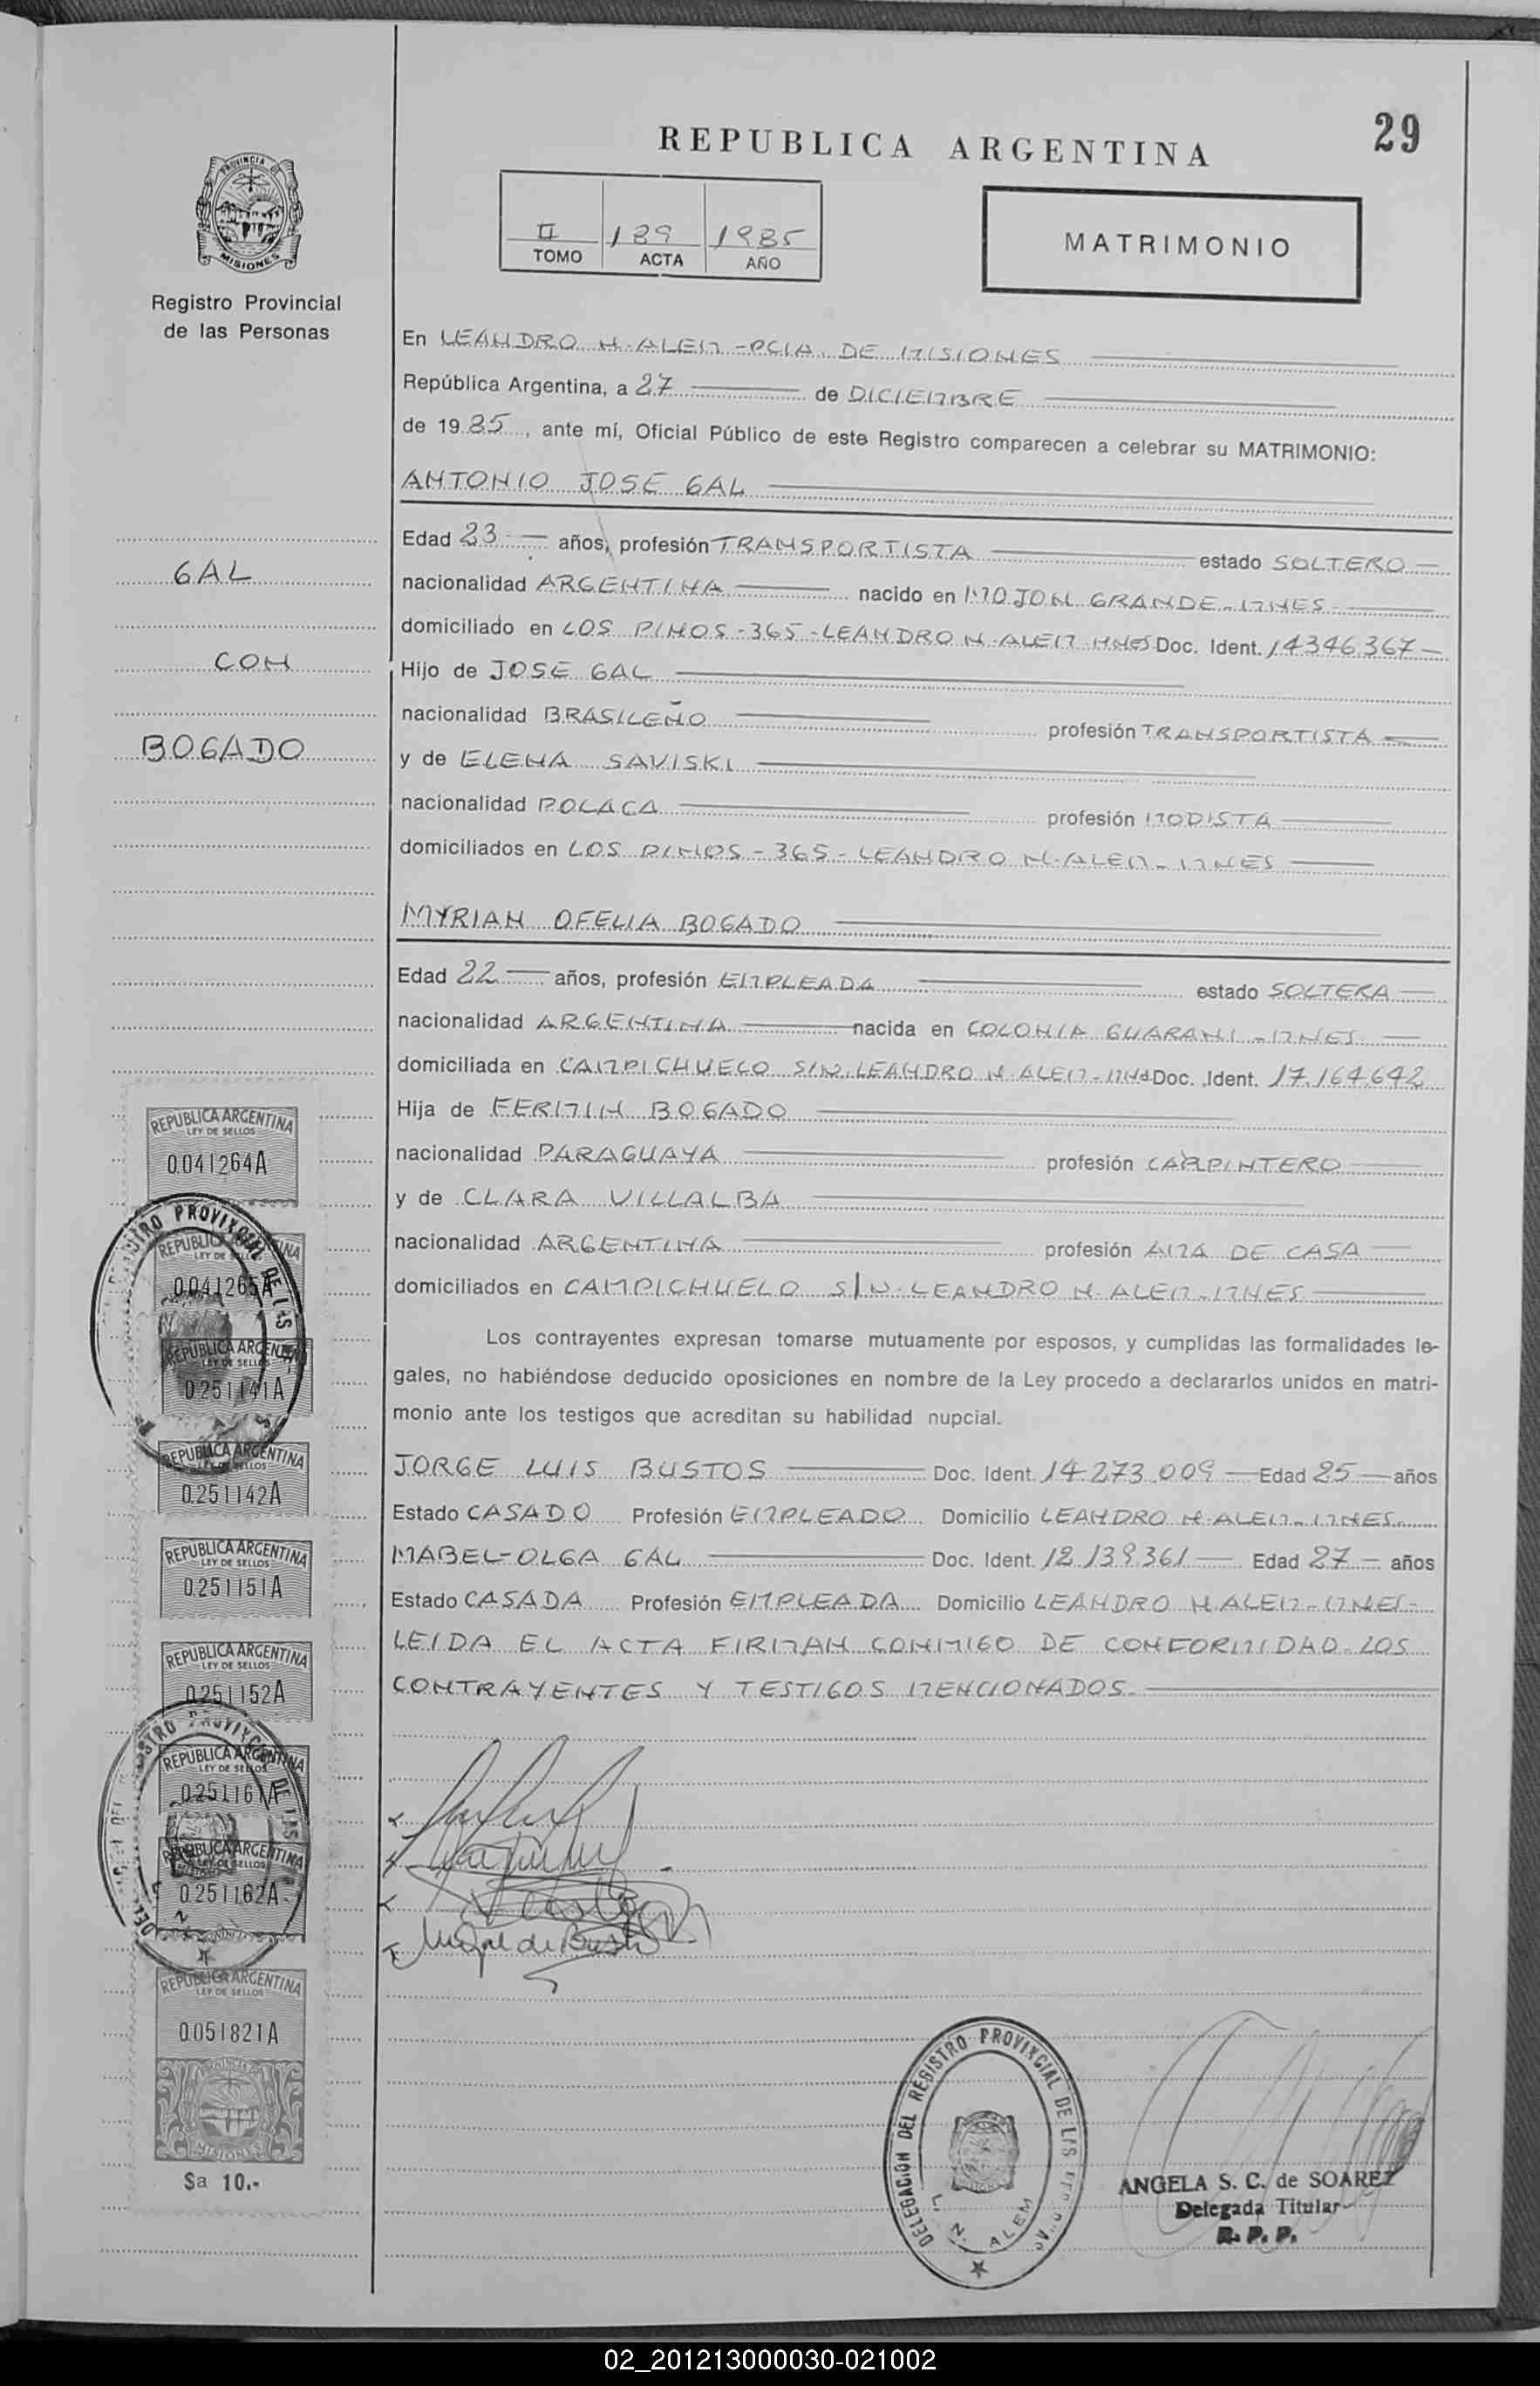 29
REPUBLICA ARGENTINA
PROVINCIA DE
MISIONES
Registro Provincial
de las Personas
II 189 1985
TOMO ACTA AÑO
MATRIMONIO
En LEANDRO N. ALEM - PCIA. DE MISIONES
República Argentina, a 27 de DICIEMBRE
de 1985, ante mí, Oficial Público de este Registro comparecen a celebrar su MATRIMONIO:
ANTONIO JOSE GAL
Edad 23 años, profesión TRANSPORTISTA estado SOLTERO
nacionalidad ARGENTINA nacido en MOJON GRANDE - MNES
domiciliado en LOS PINOS - 365 - LEANDRO N. ALEM MNES Doc. Ident. 14346367
Hijo de JOSE GAL
nacionalidad BRASILEÑO profesión TRANSPORTISTA
y de ELENA SAVISKI
nacionalidad POLACA profesión MODISTA
domiciliados en LOS PINOS - 365 - LEANDRO N. ALEM - MNES
GAL
CON
BOGADO
MYRIAN OFELIA BOGADO
Edad 22 años, profesión EMPLEADA estado SOLTERA
nacionalidad ARGENTINA nacida en COLONIA GUARANI - MNES.
domiciliada en CAMPICHUELO S/N. LEANDRO N. ALEM - MNES Doc. Ident. 17.164.642
Hija de FERMIN BOGADO
nacionalidad PARAGUAYA profesión CARPINTERO
y de CLARA VILLALBA
nacionalidad ARGENTINA profesión AMA DE CASA
domiciliados en CAMPICHUELO S/N. LEANDRO N. ALEM - MNES
Los contrayentes expresan tomarse mutuamente por esposos, y cumplidas las formalidades le-
gales, no habiéndose deducido oposiciones en nombre de la Ley procedo a declararlos unidos en matri-
monio ante los testigos que acreditan su habilidad nupcial.
JORGE LUIS BUSTOS Doc. Ident. 14.273.009 Edad 25 años
Estado CASADO Profesión EMPLEADO Domicilio LEANDRO N. ALEM - MNES.
MABEL-OLGA GAL Doc. Ident. 12.139.361 Edad 27 años
Estado CASADA Profesión EMPLEADA Domicilio LEANDRO N. ALEM - MNES-
LEIDA EL ACTA FIRMAN CONMIGO DE CONFORMIDAD LOS
CONTRAYENTES Y TESTIGOS MENCIONADOS.
REPUBLICA ARGENTINA
LEY DE SELLOS
0.041264A
REPUBLICA ARGENTINA
LEY DE SELLOS
0.041265A
REPUBLICA ARGENTINA
LEY DE SELLOS
0.251141A
REPUBLICA ARGENTINA
LEY DE SELLOS
0.251142A
REPUBLICA ARGENTINA
LEY DE SELLOS
0.251151A
REPUBLICA ARGENTINA
LEY DE SELLOS
0.251152A
REPUBLICA ARGENTINA
LEY DE SELLOS
0.251161A
REPUBLICA ARGENTINA
LEY DE SELLOS
0.251162A
REPUBLICA ARGENTINA
LEY DE SELLOS
0.051821A
MISIONES
$a 10.-
DELEGACION DEL REGISTRO PROVINCIAL DE LAS
L. N. ALEM
ANGELA S. C. de SOAREZ
Delegada Titular
R. P. P.
02_201213000030-021002